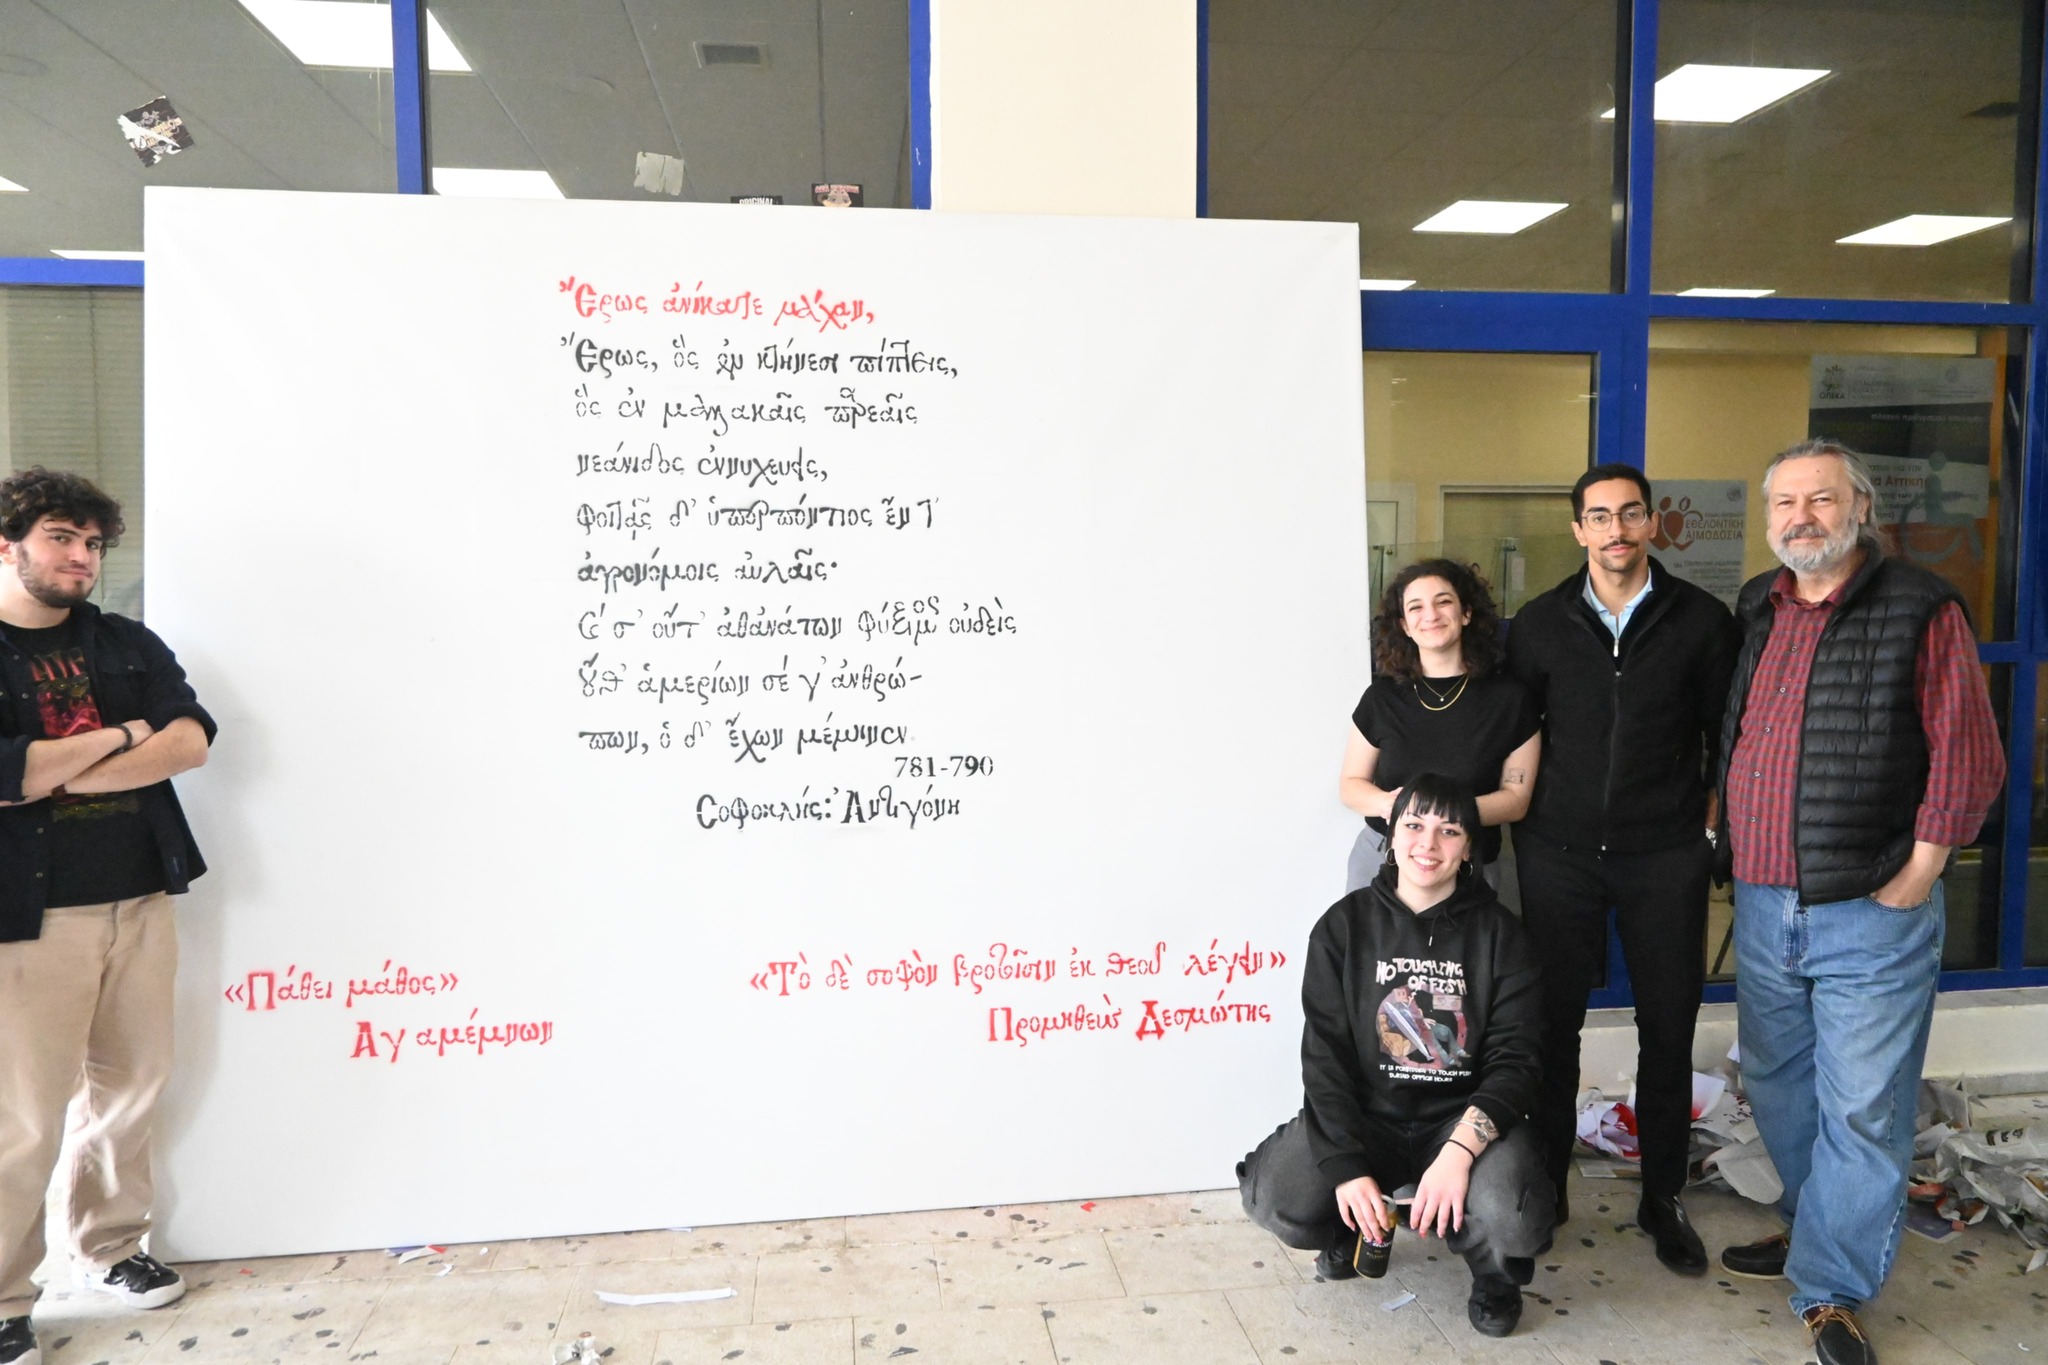 Ἔρως ἀνίκατε μάχαν,
Ἔρως, ὃς ἐν κτήνεσι πίπτεις,
ὃς ἐν μαλακαῖς παρειαῖς
νεάνιδος ἐννυχεύεις,
φοιτᾷς δ' ὑπερπόντιος ἔν τ'
ἀγρονόμοις αὐλαῖς·
καί σ' οὔτ' ἀθανάτων φύξιμος οὐδεὶς
οὔθ' ἁμερίων σέ γ' ἀνθρώ-
πων, ὁ δ' ἔχων μέμηνεν
781-790
Σοφοκλής: Ἀντιγόνη
«Πάθει μάθος»
Αγαμέμνων
«Τὸ δὲ σοφὸν βροτοῖσιν ἐκ θεοῦ λέγειν»
Προμηθεὺς Δεσμώτης
ORIGINAL
ΟΠΕΚΑ
ΕΘΕΛΟΝΤΙΚΗ
ΑΙΜΟΔΟΣΙΑ
NO TOUCHING
OF FISH
IT IS FORBIDDEN TO TOUCH FISH
DURING OFFICE HOURS